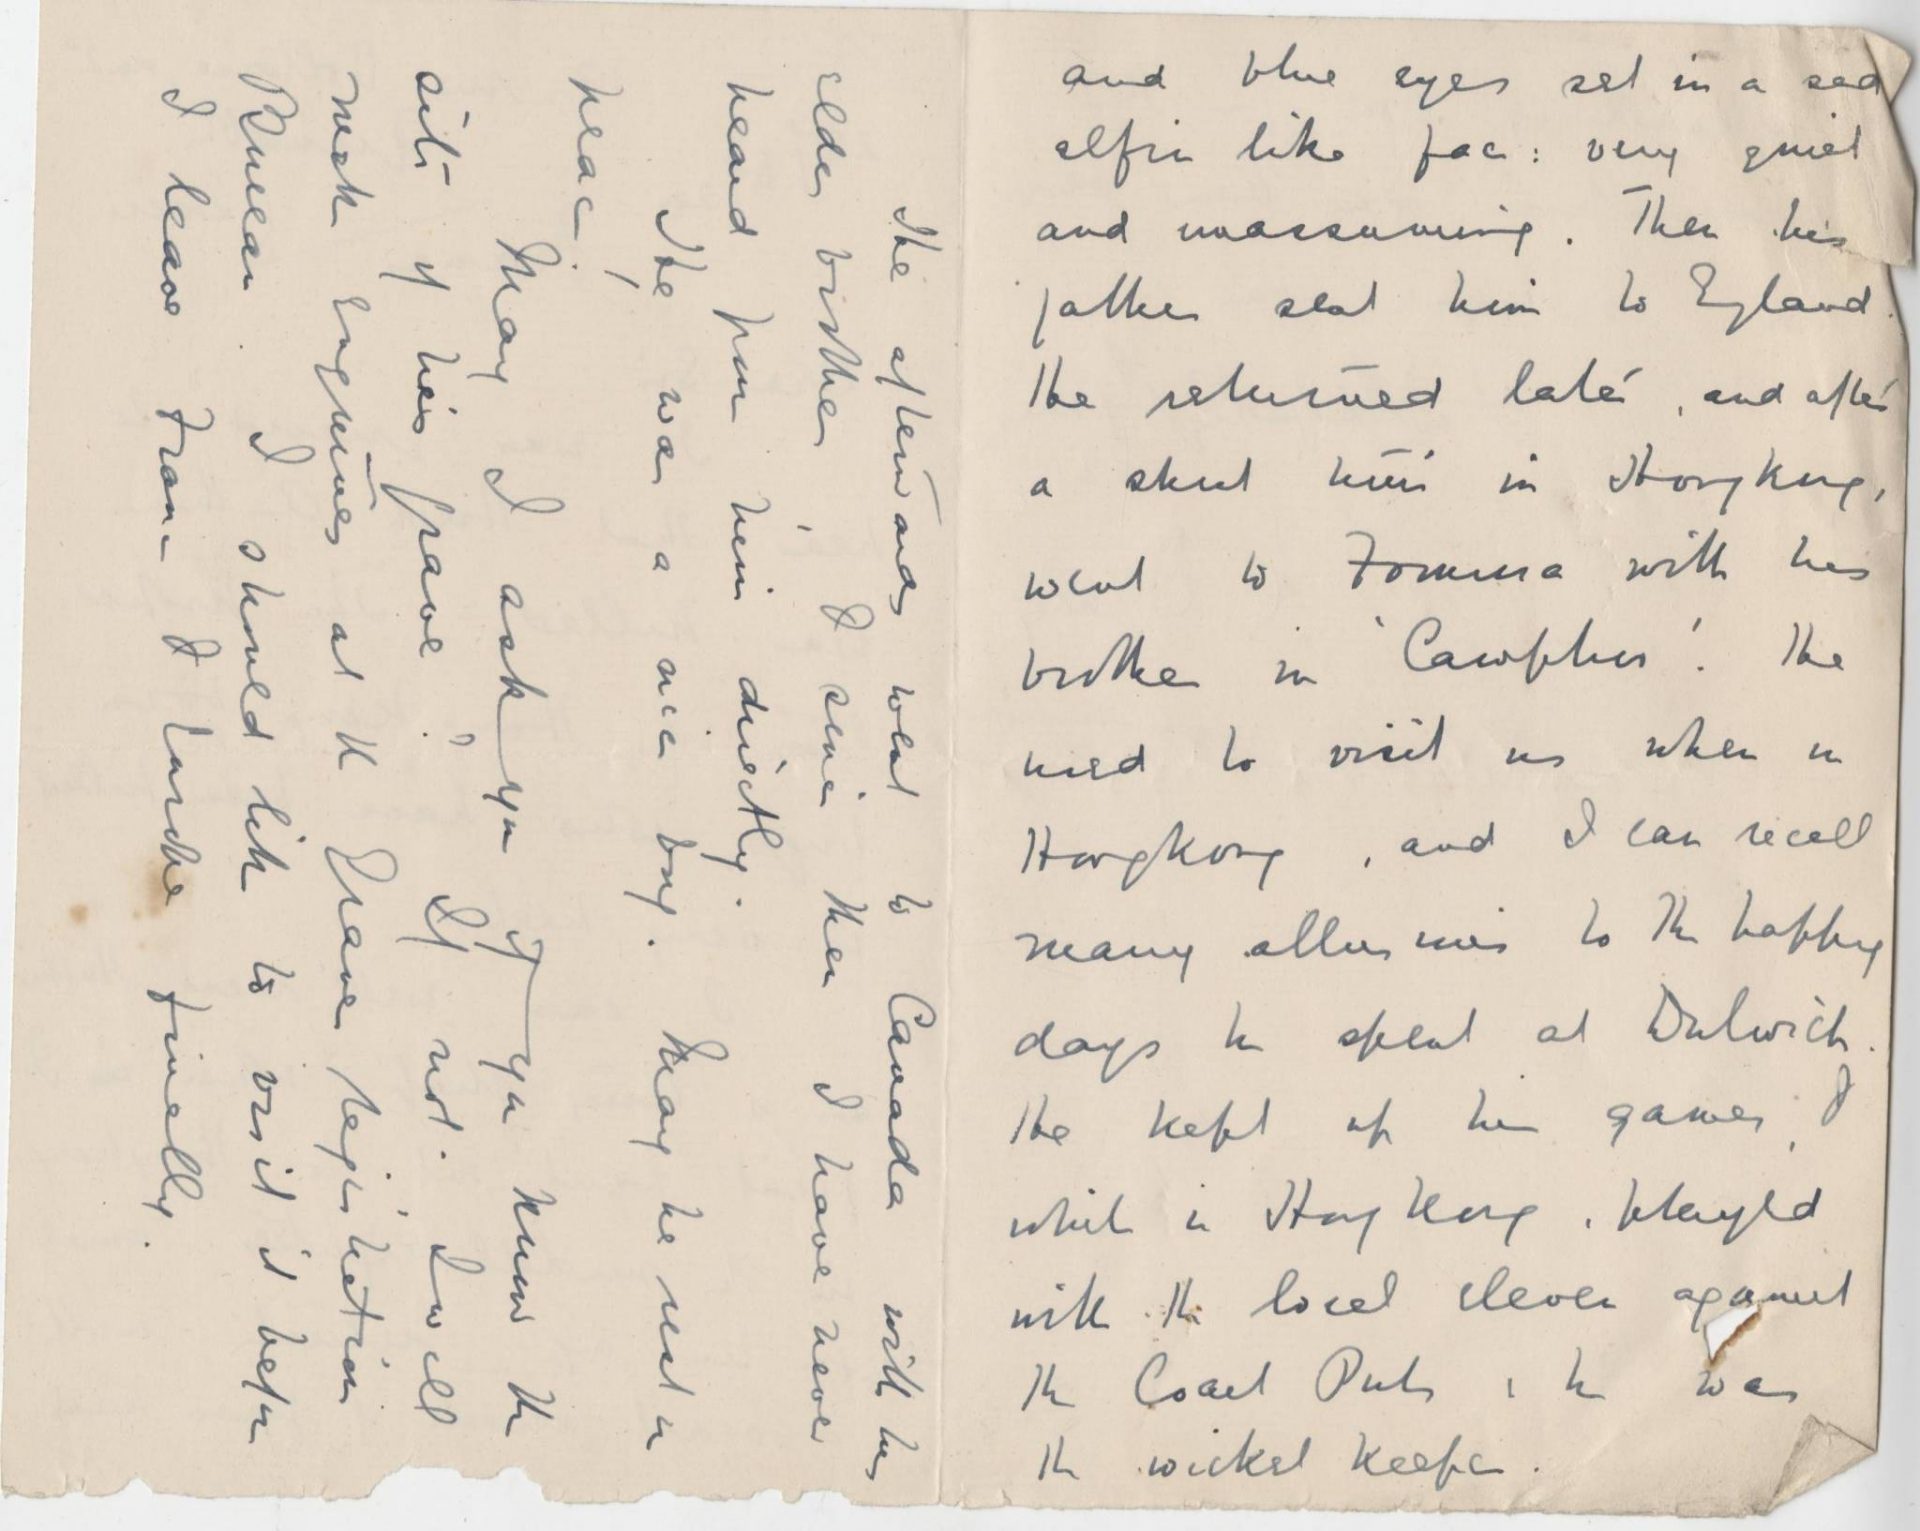 and blue eyes set in a sad
elfin like face: very quiet
and unassuming. Then his
father sent him to England.
He returned later, and after
a short time in Hongkong,
went to Formosa with his
brother in 'Camphor'. He
used to visit us when in
Hongkong, and I can recall
many allusions to the happy
days he spent at Dulwich.
He kept up his games, &
while in Hongkong, played
with the local eleven against
the Coast Ports; he was
the wicket keeper.
He afterwards went to Canada with his
elder brother, & since then I have never
heard from him directly.
He was a nice boy. May he rest in
peace.
May I ask you if you know the
site of his grave? If not, I will
make enquiries at the Graves Registration
Bureau. I should like to visit it before
I leave France & Europe finally.